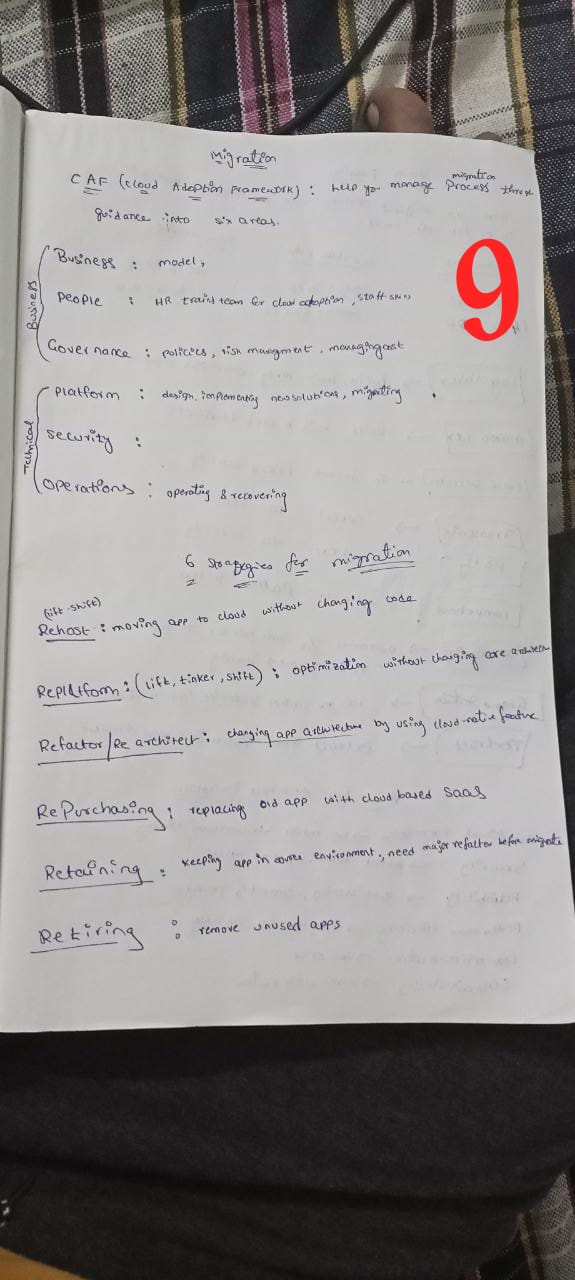 Migration
CAF (Cloud Adoption Framework) : help you manage migration Process through
guidance into six areas.
Business
Business : model,
People : HR traind team for cloud adoption, staff
Governance : policies, risk managment, managing cost
9
Technical
Platform : design, implementing new solutions, migrating
Security :
Operations : operating & recovering
6 Strategies for migration
(lift-shift)
Rehost : moving app to cloud without changing code
Replatform : (lift, tinker, shift) : optimization without changing core
Refactor/Re architect : changing app architecture by using cloud-native feature
RePurchasing : replacing old app with cloud based SaaS
Retaining : Keeping app in source environment, need major refactor before migrate
Retiring : remove unused apps